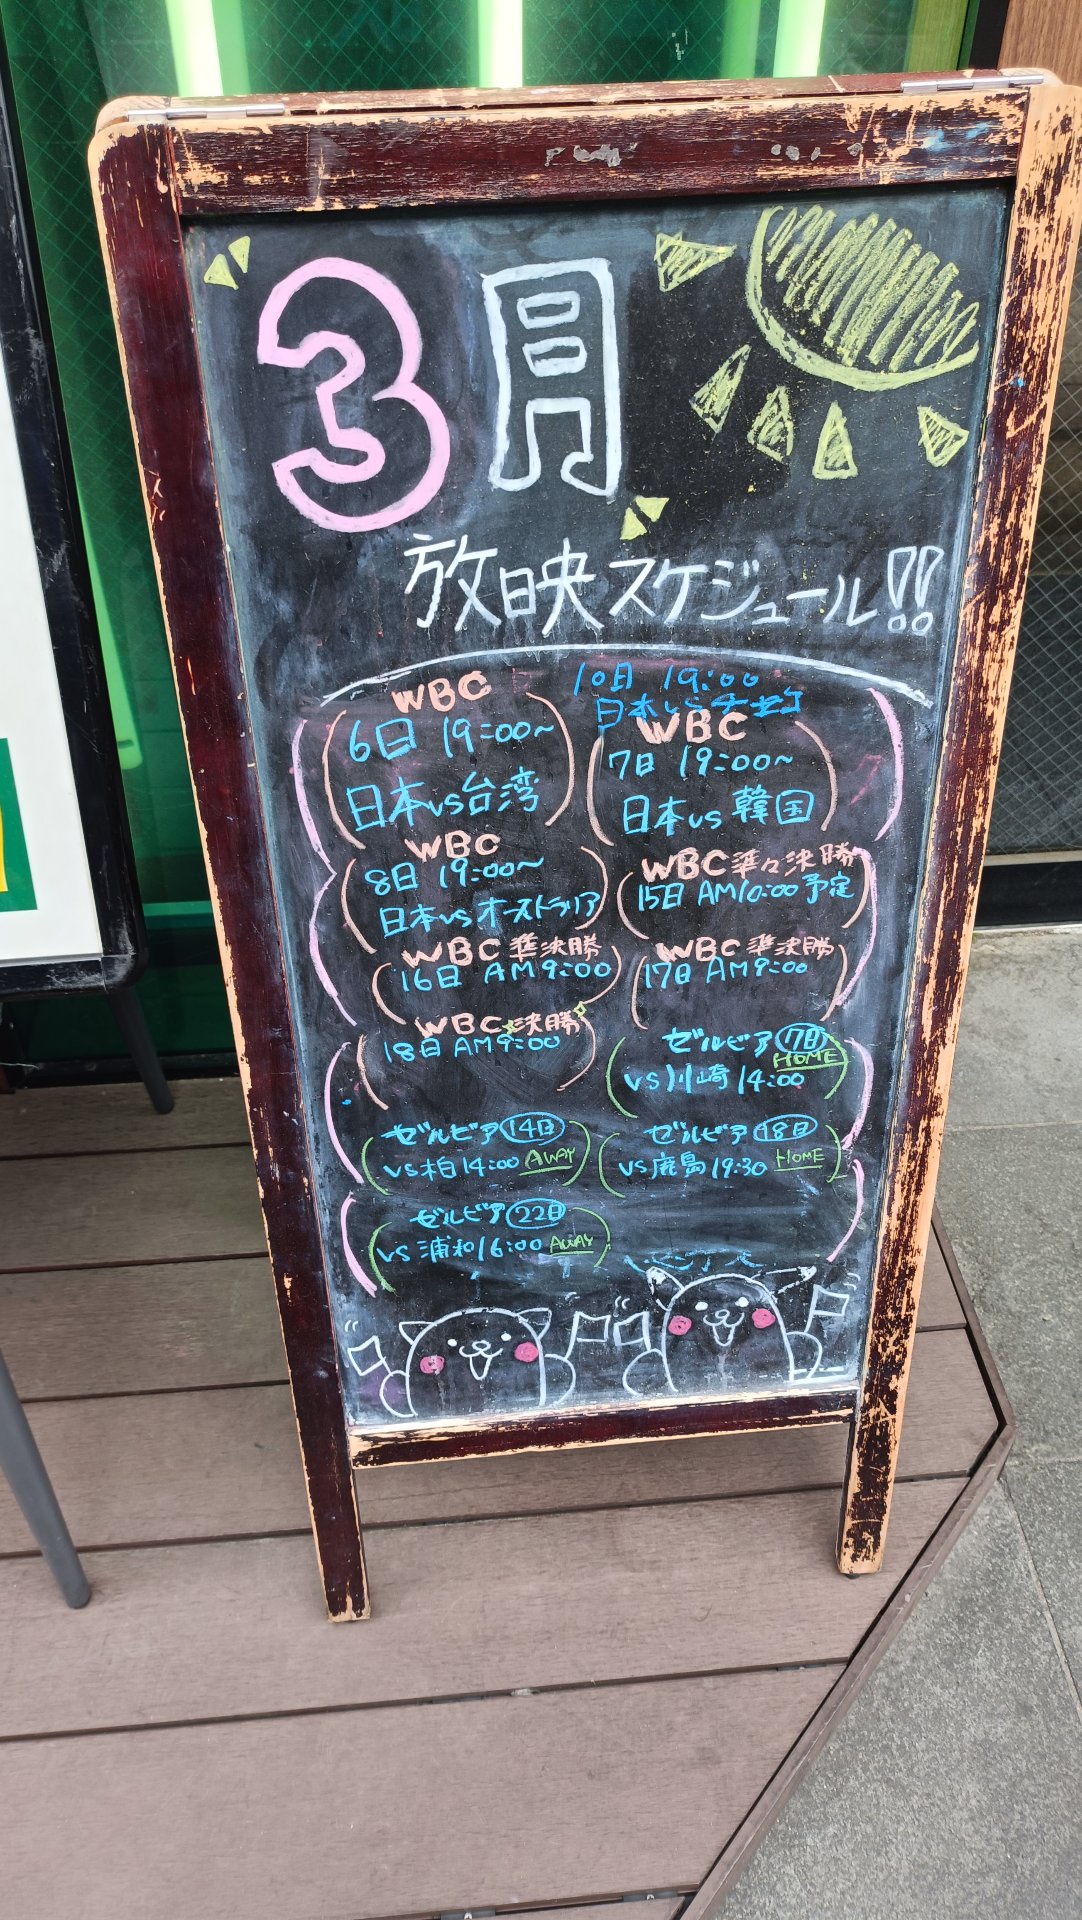 3月
放映スケジュール!!
WBC
6日 19:00〜
日本vs台湾
10日 19:00
日本vsチェコ
WBC
7日 19:00〜
日本vs韓国
WBC
8日 19:00〜
日本vsオーストラリア
WBC準々決勝
15日 AM10:00予定
WBC準決勝
16日 AM9:00
WBC準決勝
17日 AM9:00
WBC決勝
18日 AM9:00
ゼルビア 7日
HOME
vs川崎 14:00
ゼルビア 14日
vs柏 14:00 AWAY
ゼルビア 18日
vs鹿島 19:30 HOME
ゼルビア 22日
vs浦和 16:00 AWAY